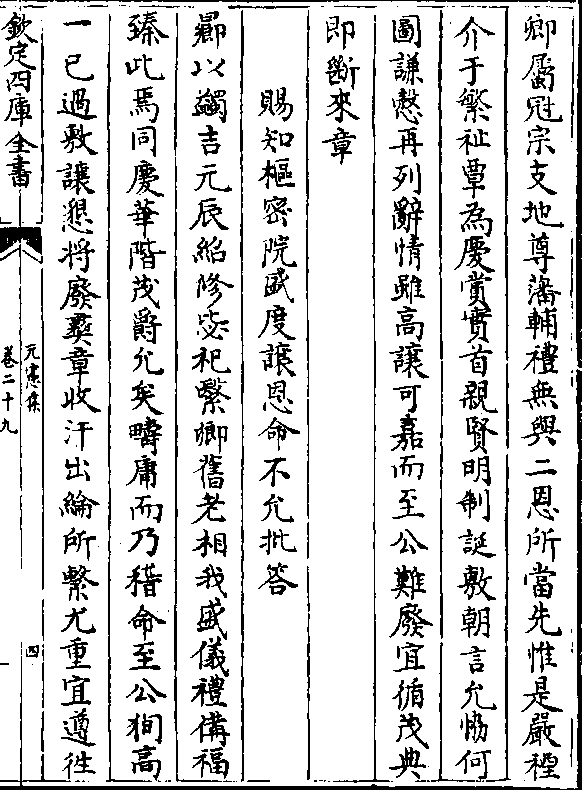 卿屬冠宗支地尊藩輔禮無與二恩所當先惟是嚴禋
介于繁祉覃為慶賞實首親賢明制誕敷朝言允協何
圖謙慤再列辭情雖高讓可嘉而至公難廢宜循茂典
即斷來章
賜知樞密院盛度讓恩命不允批答
鄉以蠲吉元辰紹脩毖祀繄卿舊老相我盛儀禮備福
臻此焉同慶華階茂爵允矣疇庸而乃稽命至公徇高
一己過敷讓懇將廢彞章收汗出綸所繫尤重宜遵往
欽定四庫全書
元憲集
卷二十九
四